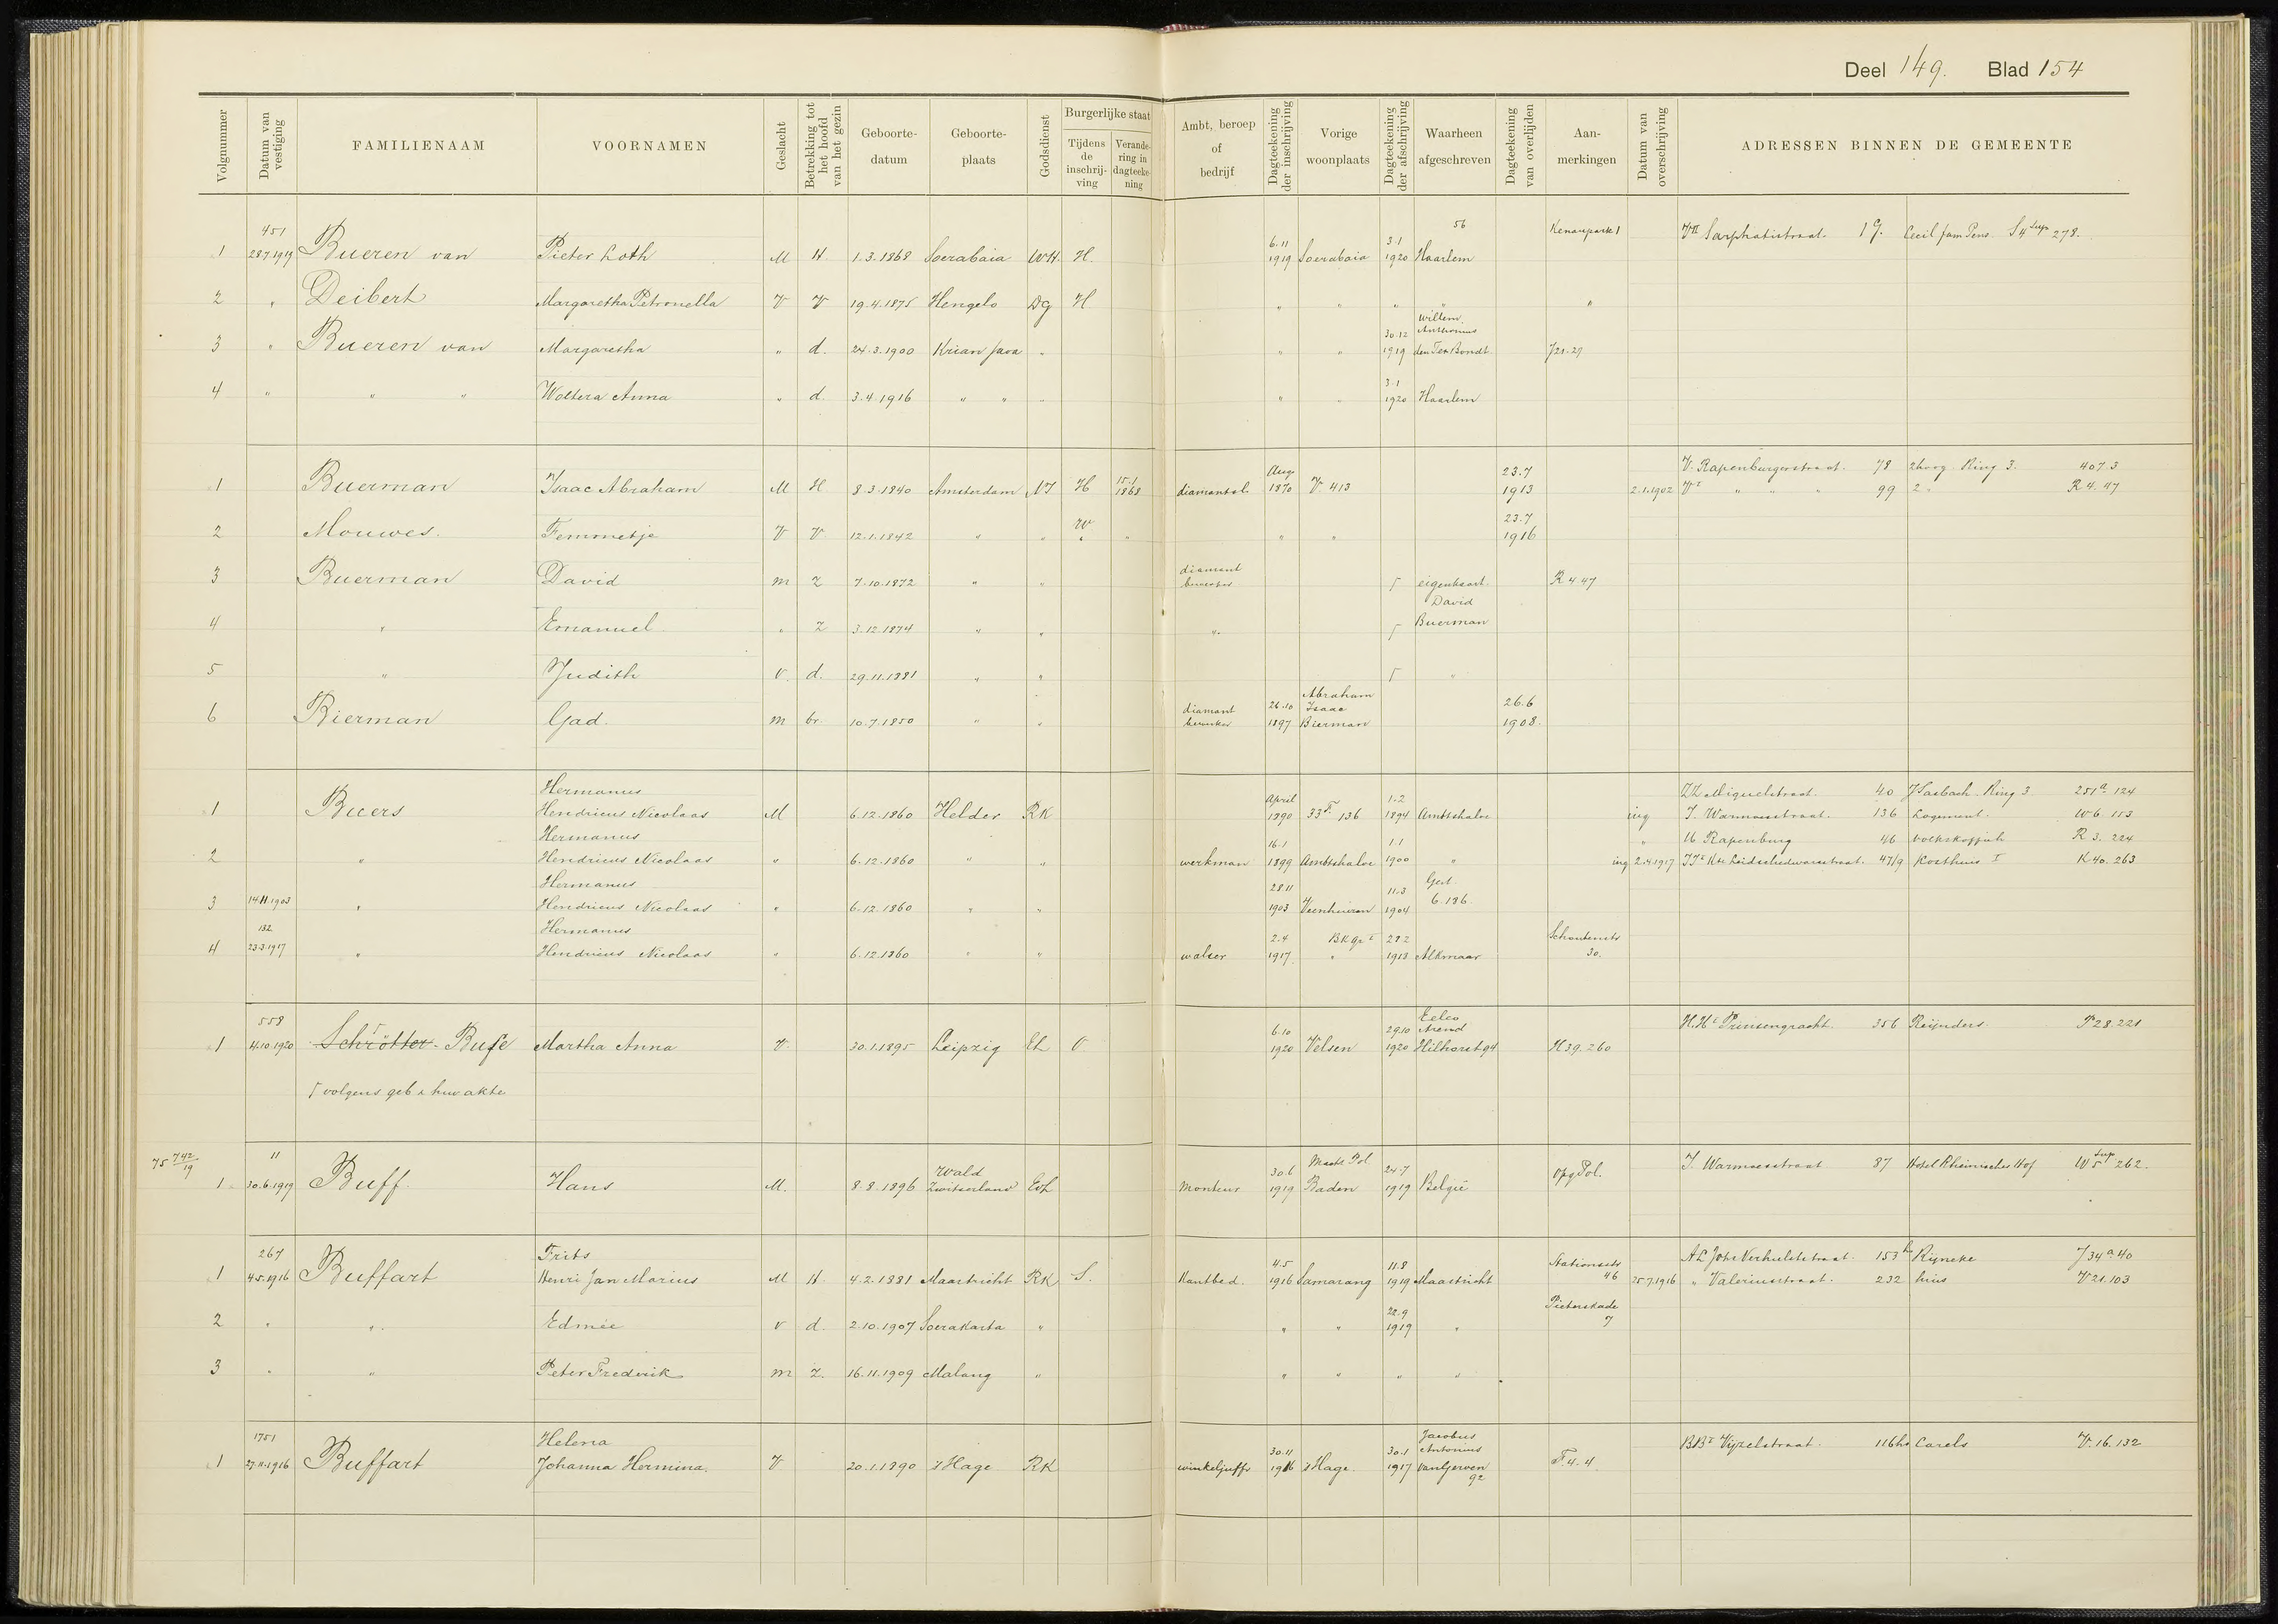 Deel 149. Blad 154
Volgnummer | Datum van vestiging | FAMILIENAAM | VOORNAMEN | Geslacht | Betrekking tot het hoofd van het gezin | Geboorte-datum | Geboorte-plaats | Godsdienst | Burgerlijke staat | Tijdens de inschrij-ving | Verande-ring in dagteeke-ning | Ambt, beroep of bedrijf | Dagteekening der inschrijving | Vorige woonplaats | Dagteekening der afschrijving | Waarheen afgeschreven | Dagteekening van overlijden | Aan-merkingen | Datum van overschrijving | ADRESSEN BINNEN DE GEMEENTE
451 56 Kenaupark 1 VII Sarphatistraat. 19. Cecil fam Pens. S 4 sup 278.
1 28.7.1919 Bueren van Pieter Loth M H. 1.3.1868 Soerabaia WH. H. 6.11 1919 Soerabaia 3.1 1920 Haarlem
2 " Deibert Margaretha Petronella V V 19.4.1875 Hengelo DG H " " " " "
3 " Bueren van Margaretha " d. 24.3.1900 Krian Java " " " 30.12 1919 Willem Anthonius den Tex Bondt J21.29
4 " " " Woltera Anna " d. 3.4.1916 " " " " " 3.1 1920 Haarlem
V. Rapenburgerstraat. 78 2hoog Ring 3. 407.3
1 Buerman Isaac Abraham M H. 8.3.1840 Amsterdam NI H 15.1 1868 diamantsl. Aug. 1870 V 413 23.7 1913 2.1.1902 VI " " " 99 2 " R 4. 47
2 Mouwes. Femmetje V V 12.1.1842 " " W " " " " 23.7 1916
3 Buerman David m z 7.10.1872 " " diamant bewerker eigenkaart. R 4.47
4 " Emanuel " z 3.12.1874 " " " David Buerman
5 " Judith v. d. 29.11.1881 " " "
6 Bierman Gad. m br. 10.7.1850 " " diamant bewerker 26.10 1897 Abraham Isaac Bierman 26.6 1908.
Hermanus ZZ Miquelstraat. 40 J Sasbach. Ring 3 251a. 124
1 Buers Hendricus Nicolaas M 6.12.1860 Helder RK April 1890 33F 136 1.2 1894 Ambtshalve ing J. Warmoesstraat. 136 Logement. W 6. 113
Hermanus " U Rapenburg 46 volkskoffieh R 3. 224
2 " Hendricus Nicolaas " 6.12.1860 " " werkman 16.1 1899 Ambtshalve 1.1 1900 " ing 2.4.1917 Kl Leidschedwarsstraat. 47/9 Kosthuis I K 40. 263
Hermanus
3 14.11.1903 " Hendricus Nicolaas " 6.12.1860 " " 28.11 1903 Veenhuizen 11.3 1904 Gest. 6.186.
132 Hermanus
4 23.3.1917 " Hendricus Nicolaas " 6.12.1860 " " walser 2.4 1917 BK Gr I " 28 2 1918 Alkmaar Schoutenstr 30.
558 H.H I Prinsengracht. 356 Reijnders. P 28.221
1 4.10.1920 Schrötter - Bufe Martha Anna V. 30.1.1895 Leipzig EL O 6.10 1920 Velsen 29.10 1920 Eelco Arend Hilhorst 94 H39.260
volgens geb & huw akte
75 742/19 11 J. Warmoesstraat 87 Hotel Rheinischer Hof W 5 sup 262.
1 30.6.1919 Buff Hans M. 8.8.1896 Wald Zwitserland Evl Monteur 30.6 1919 Macht Pol. Baden 24.7 1919 België opg Pol.
267 Frits AL Joh Verhulststraat. 153 h Rijneke J 34a.40
1 4.5.1916 Buffart Henri Jan Marius M H. 4.2.1881 Maastricht RK S. Kantbed. 4.5 1916 Samarang 11.8 1919 Maastricht Stationsstr 46 25.7.1916 " Valeriusstraat. 232 huis V 21.103
2 " " Edmée v d. 2.10.1907 Soerakarta " " " 22.9 1919 " Pieterskade 7
3 " " Peter Frederik m z. 16.11.1909 Malang " " " " "
1751 Helena BB I Vijzelstraat. 116hs Carels V. 16. 132
1 27.11.1916 Buffart Johanna Hermina. V 20.1.1890 's Hage RK winkeljuffr 30.11 1916 's Hage. 30.1 1917 Jacobus Antonius van Gerwen 92 F 4. 4